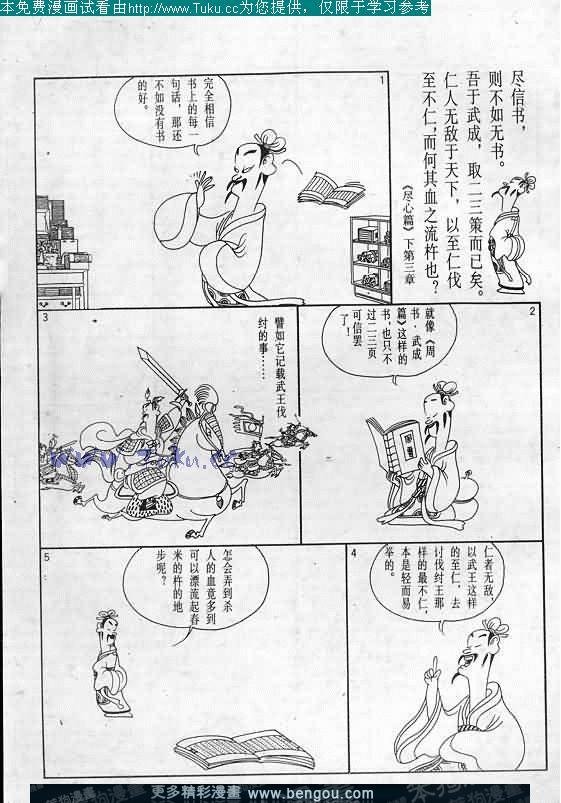 本免费漫画试看由http://www.Tuku.cc为您提供，仅限于学习参考
尽信书，
则不如无书。
吾于武成，取二三策而已矣。
仁人无敌于天下，以至仁伐
至不仁，而何其血之流杵也？
《尽心篇》下第三章
1
完全相信
书上的每一
句话，那还
不如没有书
的好。
2
就像《周
书·武成
篇》这样的
书，也只不
过二三页
可信罢
了！
3
譬如它记载武王伐
纣的事……
www.Tuku.cc
4
仁者无敌，
以武王这样
的至仁，去
讨伐纣王那
样的最不仁，
本是轻而易
举的。
5
怎会弄到杀
人的血竟多到
可以漂流起舂
米的杵的地
步呢？
更多精彩漫畫 www.bengou.com